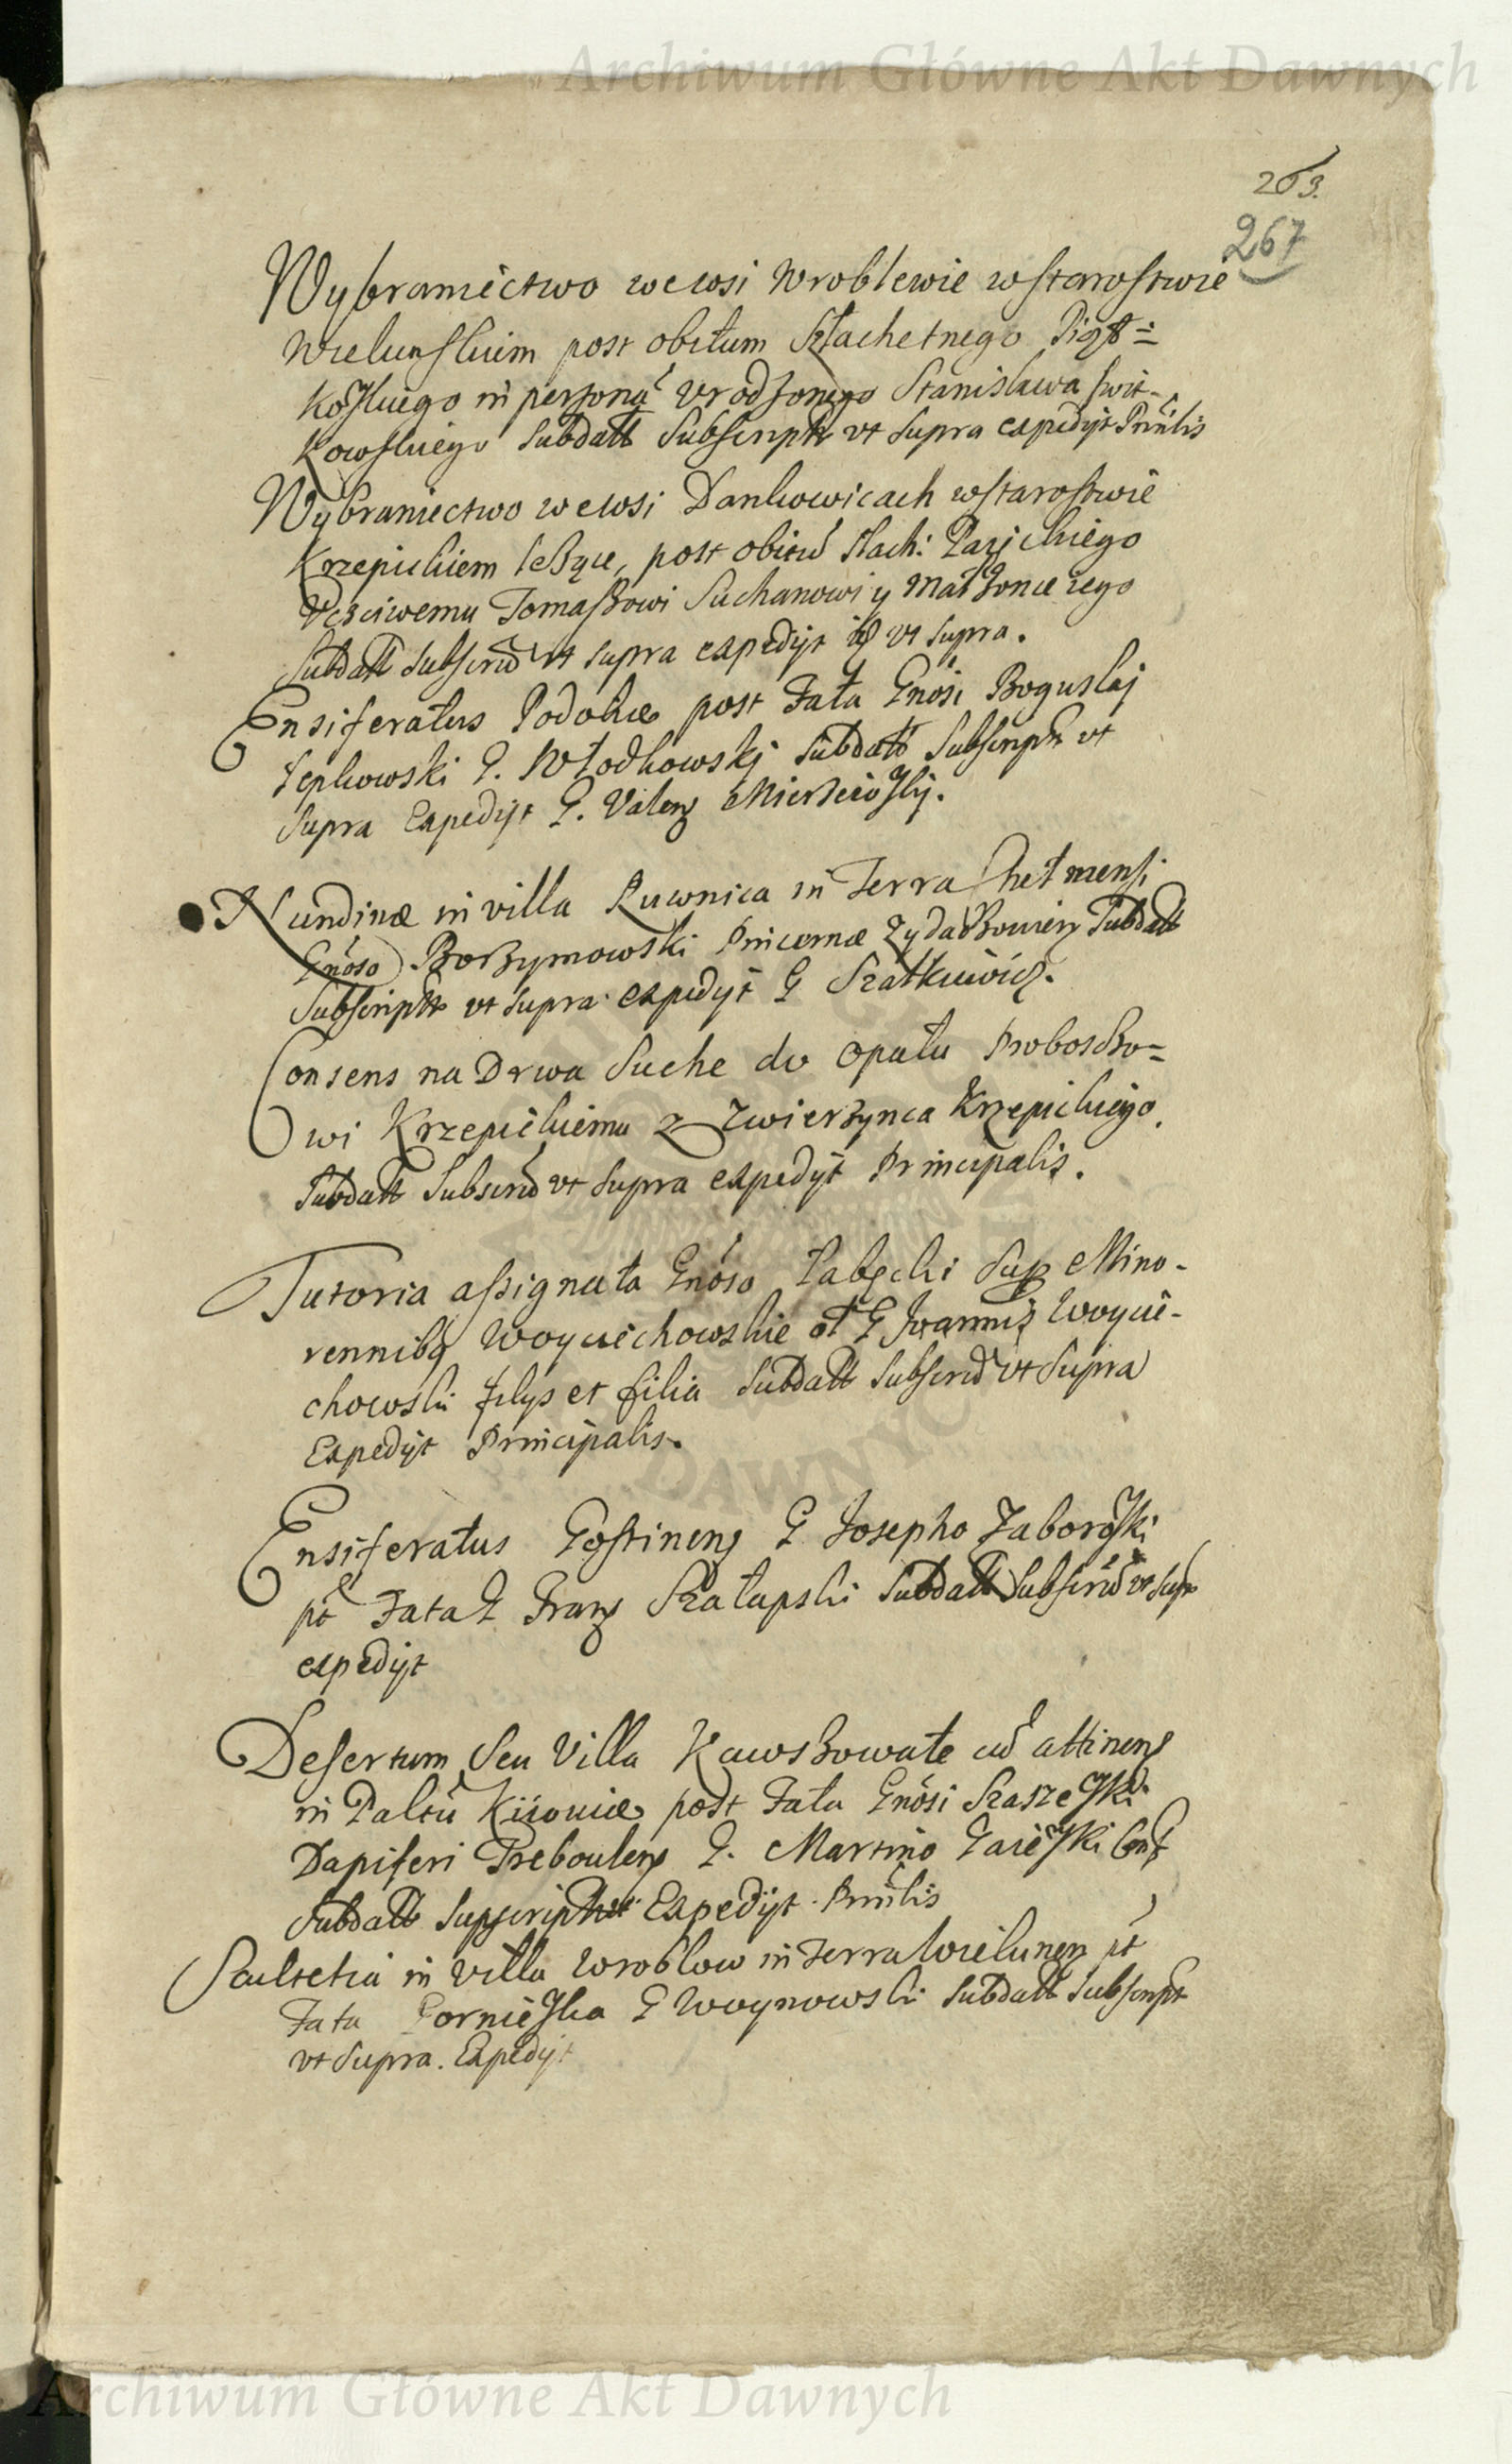 Archiwum Główne Akt Dawnych
263.
267
Wybraniectwo we wsi Wroblewie w Starostwie
Wielunskiem post obitum Szlachetnego Piąt=
kowskiego in personą Urodzonego Stanisława Swit-
kowskiego Subdatt Subscript vt Supra expedijt Princlis
Wybraniectwo we wsi Dankowicach w Starostwie
Krzepickiem leżące, post obitu Slach:
Vczciwemu Tomaszowi Suchanowi y Małżonce iego
Subdatt Subscrib vt supra expedijt id vt supra.
Ensiferatus Podoliae post Fata Gnosi Boguslai
Łepkowski G. Włodkowskj Subdatt Subscript vt
Supra Expedijt G. Valen
Nundinae in villa Ruwnica in Terra Chełmensi
Gnoso Borzymowski Pincernae Zydaczowien Subdatt
Subscript vt supra expedijt G Szatkiewicz.
Consens na Drwa Suche do opału Proboszczo=
wi Krzepickiemu z Zwierzynca Krzepickiego.
Subdatt Subscrib vt Supra expedijt Principalis.
Tutoria assignata Gnoso Łabęcki Sup Mino-
rennibq Woyciechowskie ol G Joannis Woycie-
chowski filys et filia Subdatt Subscrib vt Supra
Expedijt Principalis.
Ensiferatus Gostinens G Josepho Zaborowski
pt Fata G Franc Szałapski Subdatt Subscrib vt Supr
expedijt
Desertum Seu Villa Kawszowate cu attinens
in Paltu Kijoviae post Fata Gnosi
Dapiferi Trebowlens G. Martino Gaiewski Cons
Subdatt Supscriptus Expedijt Princlis
Scultetia in villa Wroblow in Terra Wielunen pt
Fata Gorniewska G Woynowski Subdatt Subscript
vt Supra. Expedijt
Archiwum Główne Akt Dawnych